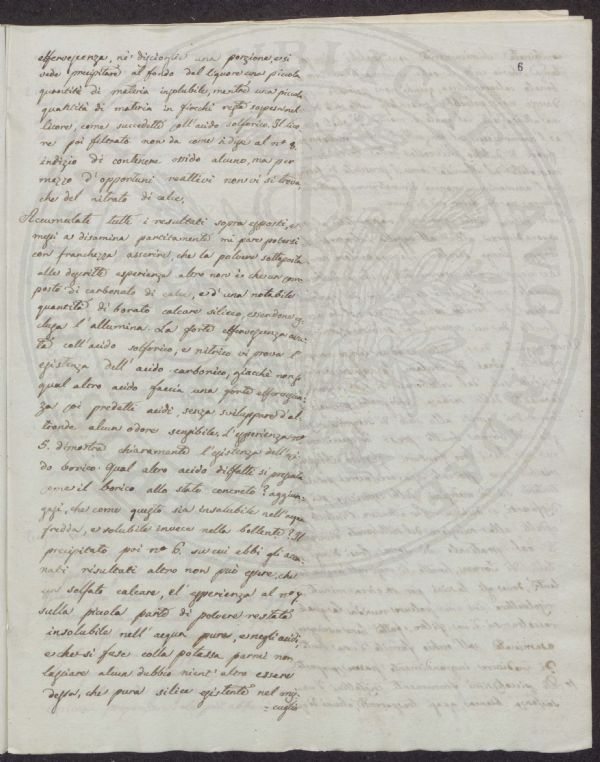 6
effervescenza, nè disciolse una porzione, e si
vede precipitare al fondo del liquore una piccola
quantità di materia insolubile, mentre una piccola
quantità di materia in fiocchi resta sospesa nel
licore, come succedette coll'acido solforico. Il lico
re poi filtrato non da come si disse al nº 8.
indizio di contenere ossido alcuno, ma per
mezzo d'opportuni reattivi non vi si trova,
che del nitrato di calce.
Accumulate tutti i resultati sopra esposti, e
messi a disamina partitamente mi pare potersi
con franchezza asserire, che la polvere sottoposta
alle descritte esperienze altro non è che un com
posto di carbonato di calce, e d'una notabile
quantità di borato calcare siliceo, essendone es
clusa l'allumina. La forte effervescenza
coll'acido solforico, e nitrico vi prova l'
esistenza dell'acido carbonico, giacchè non
qual altro acido faccia una forte effervescen
za coi predetti acidi senza sviluppare d'al
tronde alcun odore sensibile. L'esperienza nº
5. dimostra chiaramente l'esistenza dell'aci
do borico. Qual altro acido diffatti si prepara
come il borico allo stato concreto? aggiun
gasi, che come questo sia insolubile nell'acqua
fredda, e solubile invece nella bollente? Il
precipitato poi nº 6. su cui ebbi gli accen
nati risultati altro non può essere, che
un solfato calcare, e l'esperienza al nº 7
sulla piccola parte di polvere restata
insolubile nell'acqua pura, e negli acidi,
e che si fuse colla potassa parmi non
lasciare alcun dubbio nient'altro essere
dessa, che pura silice esistente nel mis
cuglio